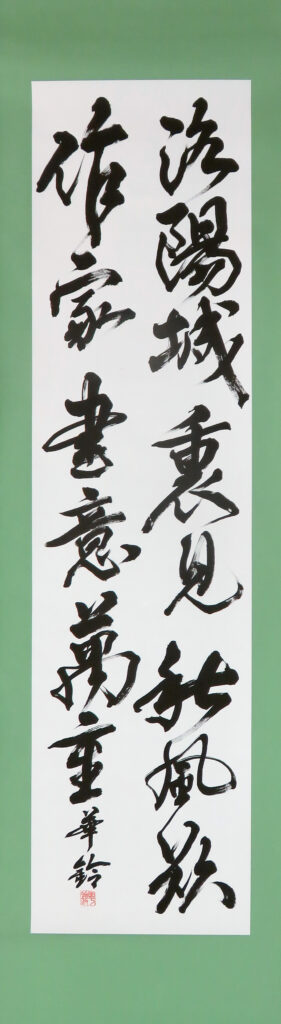 洛陽城裏見秋風欲
作家書意萬重
華鈴